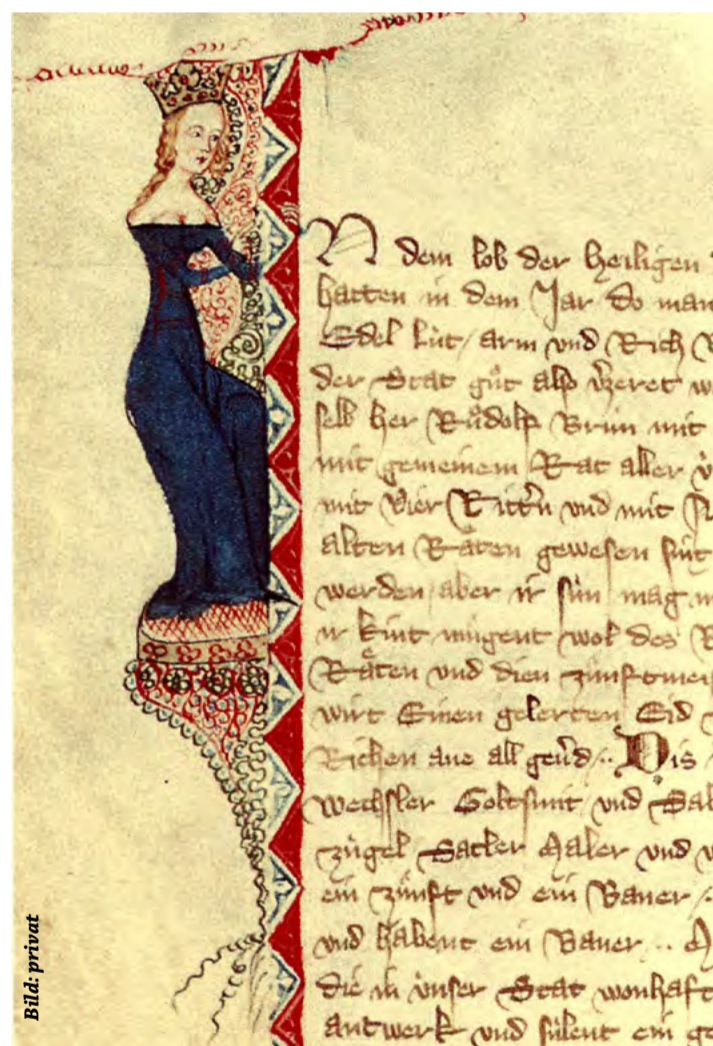 N dem lob der heiligen
hatten in dem Jar do man
Edel lùt / arm und Rich
der Stat gůt also
selb her Růdolf Brun mit
mit gemeinem Rat aller
mit Vier Rittern und mit
alten Ræten gewesen sint
werden / aber ir sùn mag
ir kint mùgent wol des
Ræten und dien zùnftmei
wirt Einen gelerten Eid
Richen ane all geùd /.. Dis
wechsler Goltsmit und Sal
zùgel Satler Maler und
ein zùnft und ein Baner /.
und habent ein Baner ..
die in ùnser Stat wonhaft
antwerk und sùlent ein ge
Bild: privat